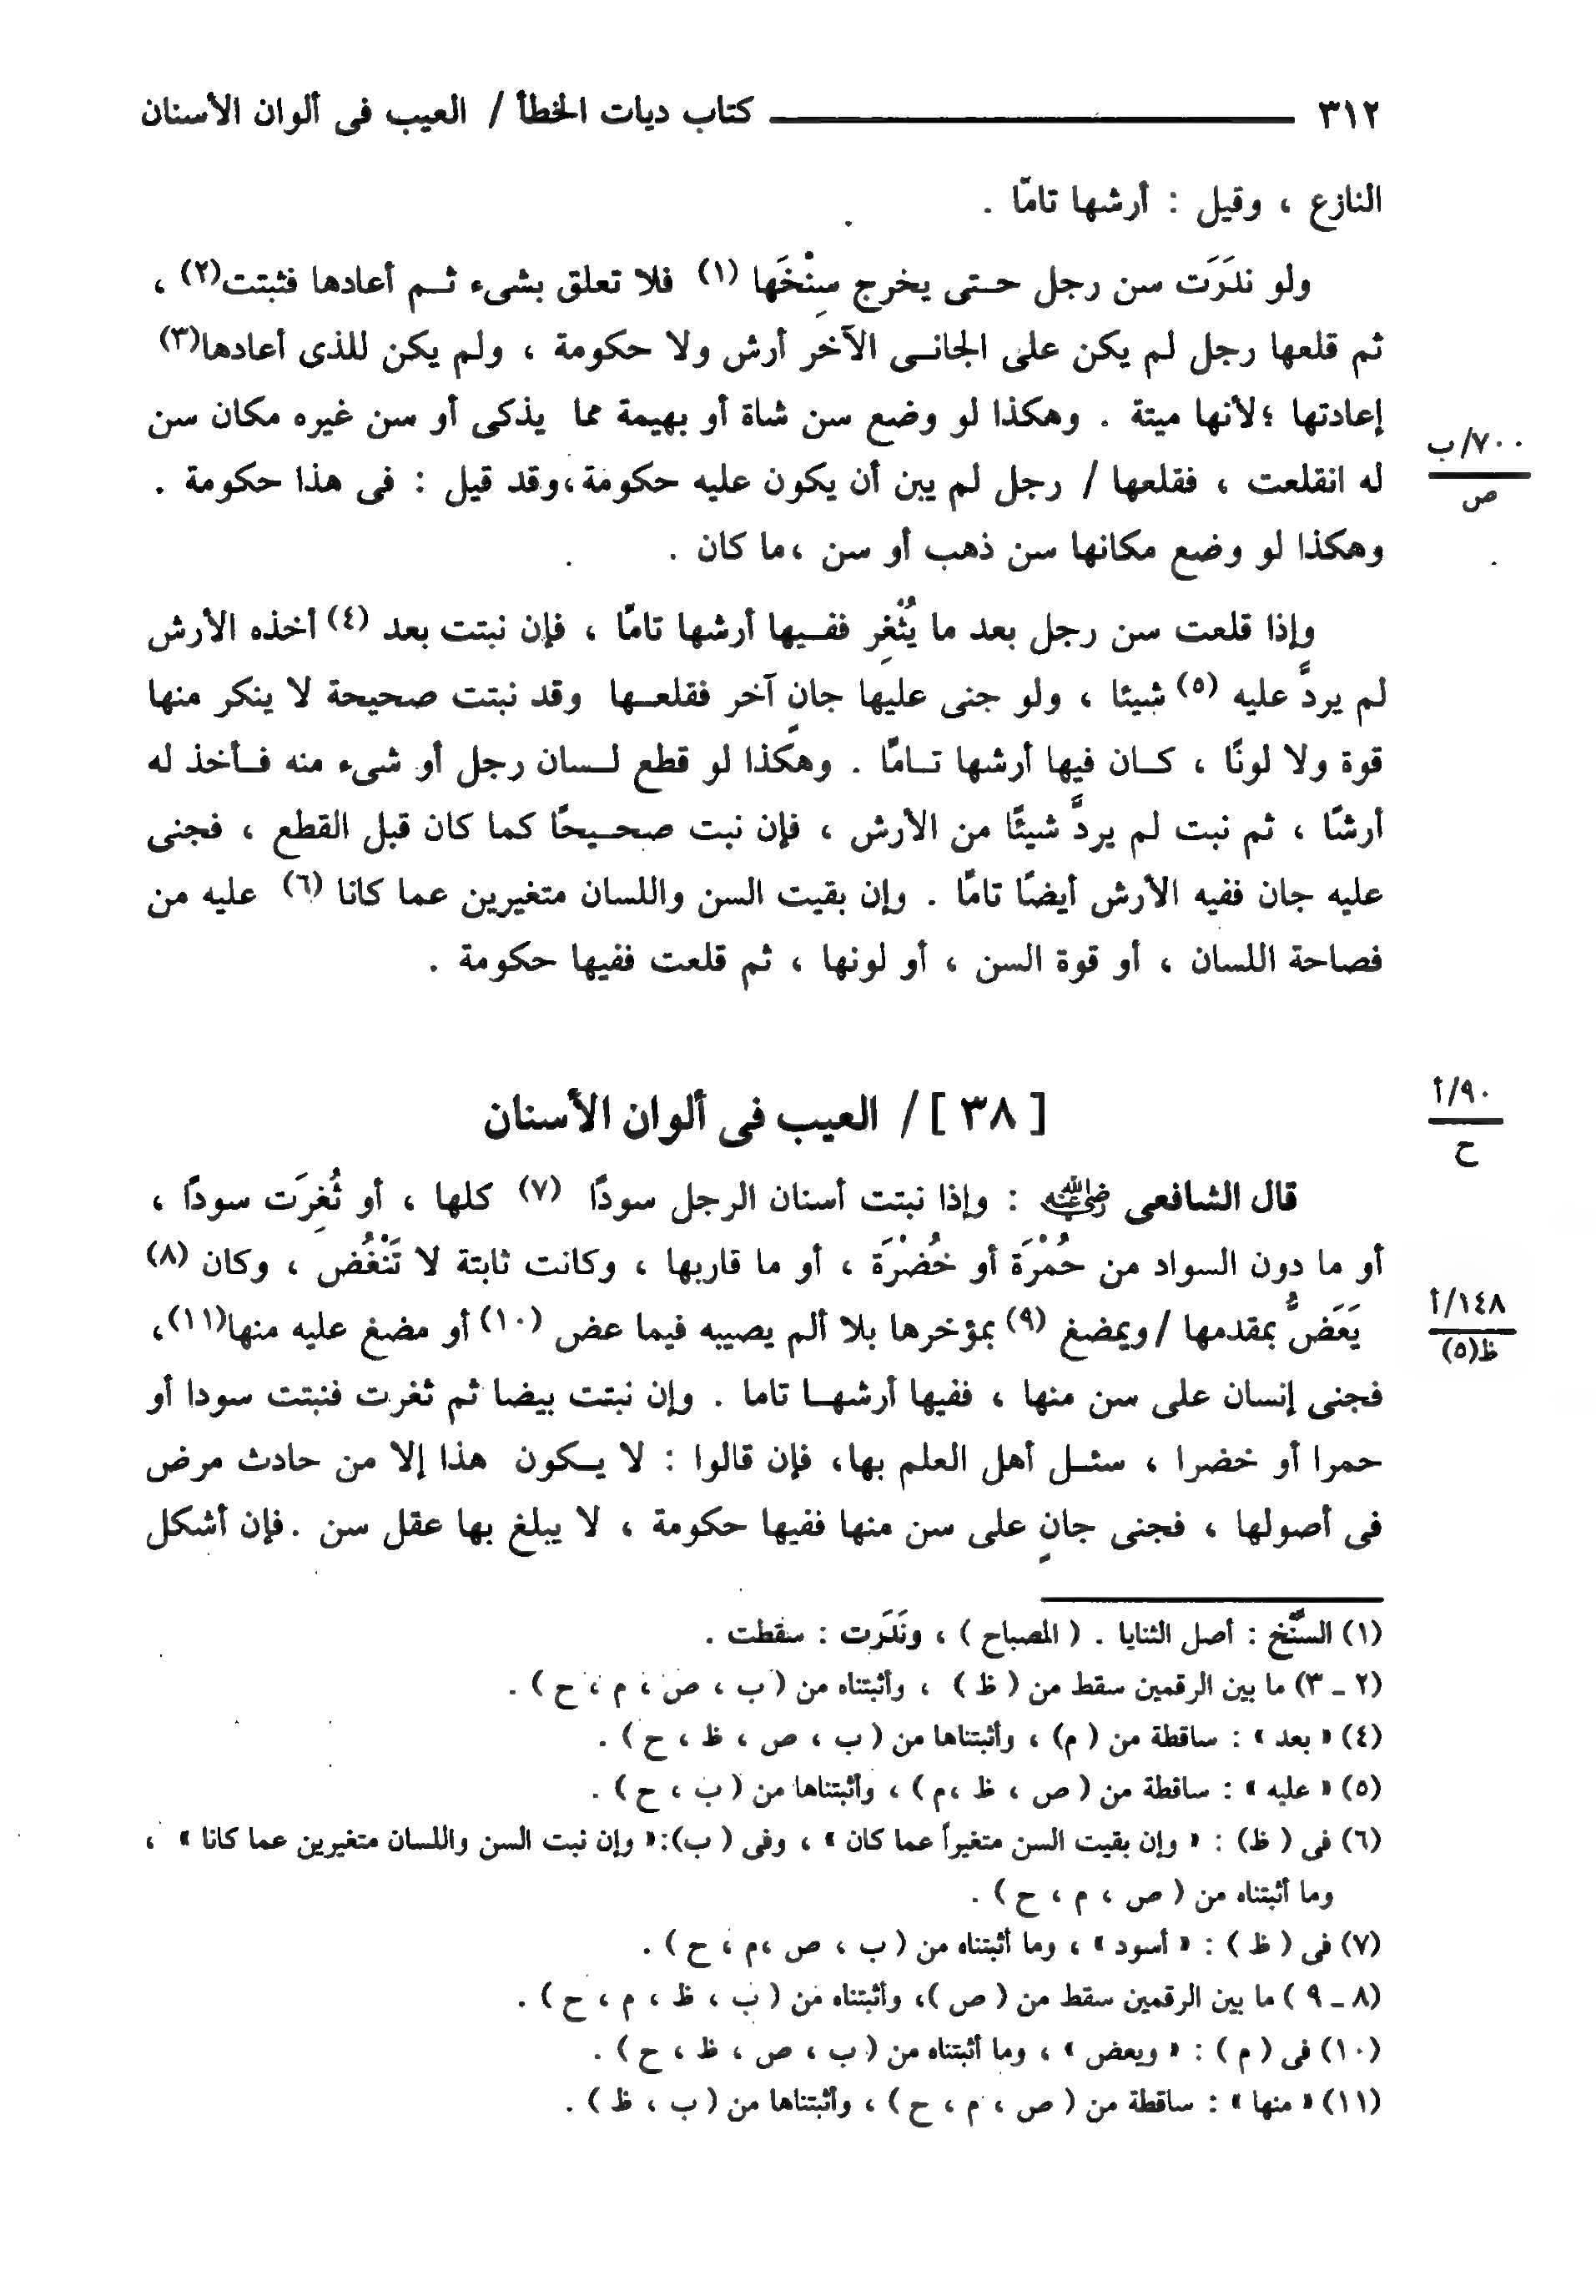 ٣١٢ كتاب ديات الخطأ / العيب فى ألوان الأسنان
النازع ، وقيل : أرشها تامًا .
ولو ندَرَت سن رجل حتى يخرج سِنْخَها (١) فلا تعلق بشىء ثم أعادها فثبتت(٢) ،
ثم قلعها رجل لم يكن على الجانى الآخر أرش ولا حكومة ، ولم يكن للذى أعادها(٣)
إعادتها ؛لأنها ميتة . وهكذا لو وضع سن شاة أو بهيمة مما يذكى أو سن غيره مكان سن
له انقلعت ، فقلعها / رجل لم يبن أن يكون عليه حكومة،وقد قيل : فى هذا حكومة .
٧٠٠/ب
ص
وهكذا لو وضع مكانها سن ذهب أو سن ،ما كان .
وإذا قلعت سن رجل بعد ما يُثْغِر ففيها أرشها تامًا ، فإن نبتت بعد (٤) أخذه الأرش
لم يردَّ عليه (٥) شيئا ، ولو جنى عليها جانٍ آخر فقلعها وقد نبتت صحيحة لا ينكر منها
قوة ولا لونًا ، كان فيها أرشها تامًا . وهكذا لو قطع لسان رجل أو شىء منه فأخذ له
أرشًا ، ثم نبت لم يردَّ شيئًا من الأرش ، فإن نبت صحيحًا كما كان قبل القطع ، فجنى
عليه جان ففيه الأرش أيضًا تامًا . وإن بقيت السن واللسان متغيرين عما كانا (٦) عليه من
فصاحة اللسان ، أو قوة السن ، أو لونها ، ثم قلعت ففيها حكومة .
[ ٣٨ ] / العيب فى ألوان الأسنان
٩٠/أ
ح
قال الشافعى رضي الله عنه : وإذا نبتت أسنان الرجل سودًا (٧) كلها ، أو ثُغِرَت سودًا ،
أو ما دون السواد من حُمْرَة أو خُضْرَة ، أو ما قاربها ، وكانت ثابتة لا تَنْغُض ، وكان (٨)
يَعَضُّ بمقدمها / ويمضغ (٩) بمؤخرها بلا ألم يصيبه فيما عض (١٠) أو مضغ عليه منها(١١)،
١٤٨/أ
ظ(٥)
فجنى إنسان على سن منها ، ففيها أرشها تاما . وإن نبتت بيضا ثم ثغرت فنبتت سودا أو
حمرا أو خضرا ، سئل أهل العلم بها، فإن قالوا : لا يكون هذا إلا من حادث مرض
فى أصولها ، فجنى جانٍ على سن منها ففيها حكومة ، لا يبلغ بها عقل سن .فإن أشكل
(١) السِّنْخ : أصل الثنايا . ( المصباح ) ، ونَدَرت : سقطت .
(٢ ـ ٣) ما بين الرقمين سقط من ( ظ ) ، وأثبتناه من ( ب ، ص ، م ، ح ) .
(٤) « بعد » : ساقطة من ( م) ، وأثبتناها من ( ب ، ص ، ظ ، ح ) .
(٥) « عليه » : ساقطة من ( ص ، ظ ،م ) ، وأثبتناها من ( ب ، ح ) .
(٦) فى ( ظ) : « وإن بقيت السن متغيراً عما كان » ، وفى ( ب):« وإن نبت السن واللسان متغيرين عما كانا » ،
وما أثبتناه من ( ص ، م ، ح ) .
(٧) فى ( ظ ) : « أسود » ، وما أثبتناه من ( ب ، ص ،م ، ح ) .
(٨ ـ ٩ ) ما بين الرقمين سقط من ( ص )، وأثبتناه من ( ب ، ظ ، م ، ح ) .
(١٠) فى ( م ) : « ويعض » ، وما أثبتناه من ( ب ، ص ، ظ ، ح ) .
(١١) « منها » : ساقطة من ( ص ، م ، ح ) ، وأثبتناها من ( ب ، ظ ) .